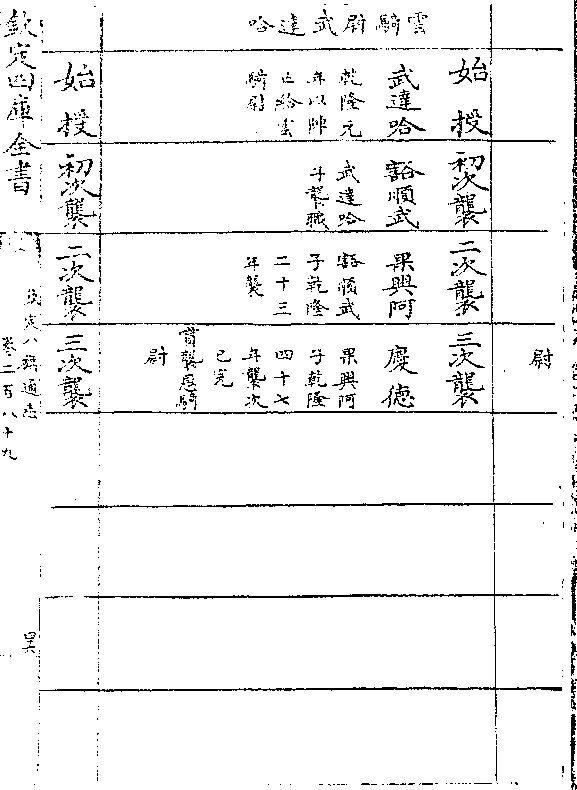 尉
雲騎尉武達哈
始授
初次襲
二次襲
三次襲
武達哈
乾隆元
年以陣
亡給雲
騎尉
谿順武
武達哈
子襲職
果興阿
谿順武
子乾隆
二十三
年襲
慶德
果興阿
子乾隆
四十七
年襲次
已完
襲恩騎
尉
始授
初次襲
二次襲
三次襲
欽定四庫全書
欽定八旗通志
卷二百八十九